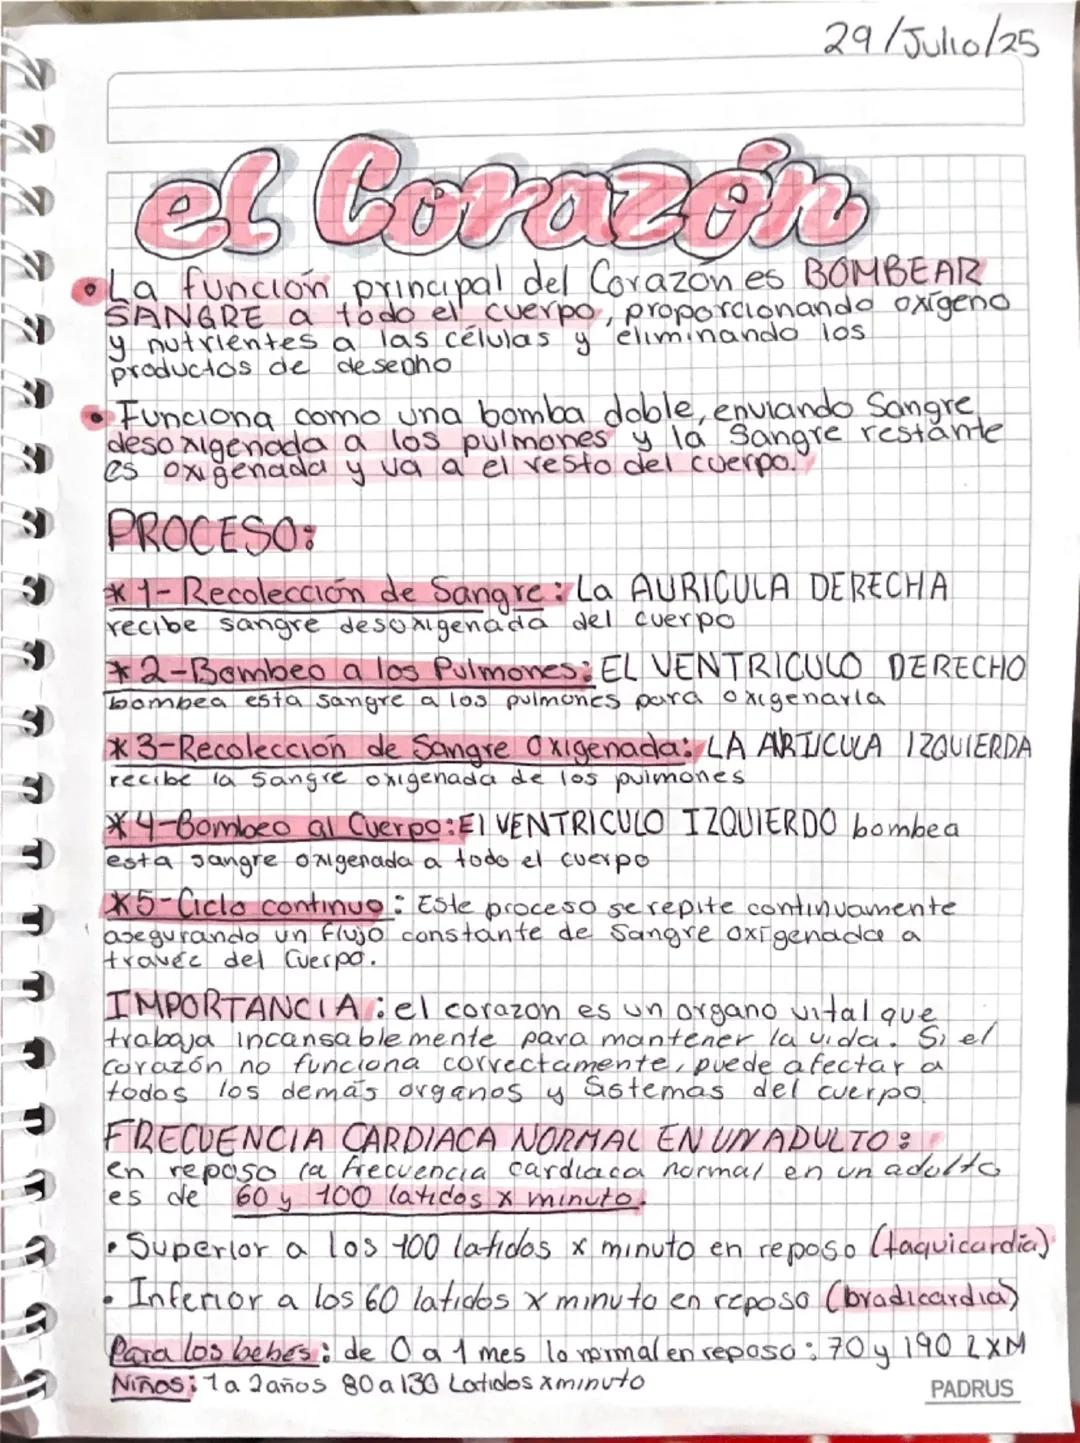 29/Julio/25
el Corazón
• La función principal del Corazón es BOMBEAR
SANGRE a todo el cuerpo, proporcionando oxígeno
y nutrientes a las células y eliminando los
productos de desecho
• Funciona como una bomba doble, enviando Sangre
desoxigenada a los pulmones y la Sangre restante
es oxigenada y va a el resto del cuerpo.
PROCESO:
* 1- Recolección de Sangre: La AURICULA DERECHA
recibe sangre desoxigenada del cuerpo
* 2-Bombeo a los Pulmones: EL VENTRICULO DERECHO
bombea esta sangre a los pulmones para oxigenarla
* 3-Recolección de Sangre Oxigenada: LA ARTICULA IZQUIERDA
recibe la sangre oxigenada de los pulmones
* 4-Bombeo al Cuerpo: El VENTRICULO IZQUIERDO bombea
esta sangre oxigenada a todo el cuerpo
* 5-Ciclo continuo: Este proceso se repite continuamente
asegurando un flujo constante de Sangre oxigenada a
travéc del Cuerpo.
IMPORTANCIA: el corazon es un organo vital que
trabaja incansablemente para mantener la vida. Si el
corazón no funciona correctamente, puede afectar a
todos los demás organos y Sistemas del cuerpo.
FRECUENCIA CARDIACA NORMAL EN UN ADULTO:
en reposo la frecuencia cardiaca normal en un adulto
es de 60 y 100 latidos x minuto.
• Superior a los 100 latidos x minuto en reposo (taquicardia)
• Inferior a los 60 latidos x minuto en reposo (bradicardia)
Para los bebés: de 0 a 1 mes lo normal en reposo: 70 y 190 LXM
Niños: 1 a 2 años 80 a 130 Latidos x minuto
PADRUS